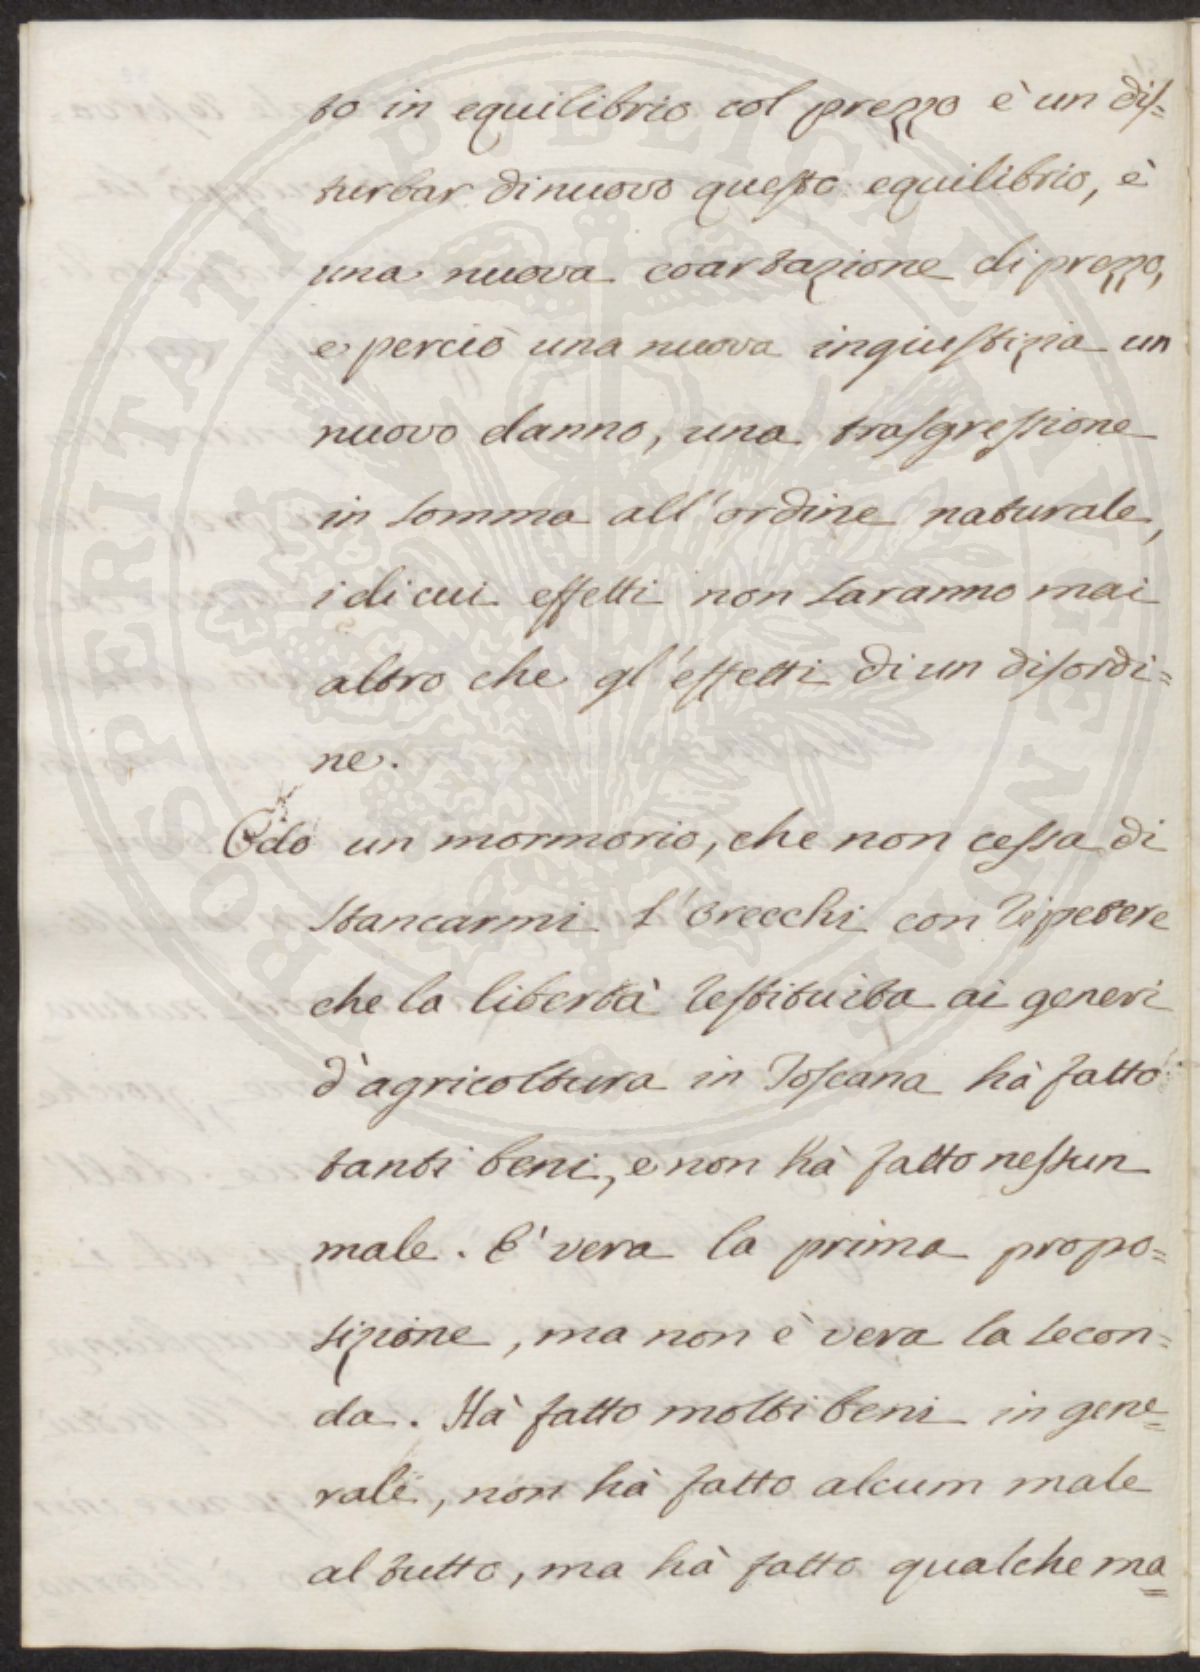 to in equilibrio col prezzo è un dis=
turbar dinuovo questo equilibrio, è
una nuova coartazione di prezzo,
e perciò una nuova ingiustizia un
nuovo danno, una trasgressione
in somma all'ordine naturale,
i di cui effetti non saranno mai
altro che gl'effetti di un disordi=
ne.
Odo un mormorio, che non cessa di
stancarmi l'orecchi con ripetere
che la libertà restituita ai generi
d'agricoltura in Toscana hà fatto
tanti beni, e non hà fatto nessun
male. E' vera la prima propo=
sizione, ma non è vera la secon=
da. Hà fatto molti beni in gene=
rale, non hà fatto alcum male
al tutto, ma hà fatto qualche ma
PROSPERITATI PUBLICAE AUGENDAE